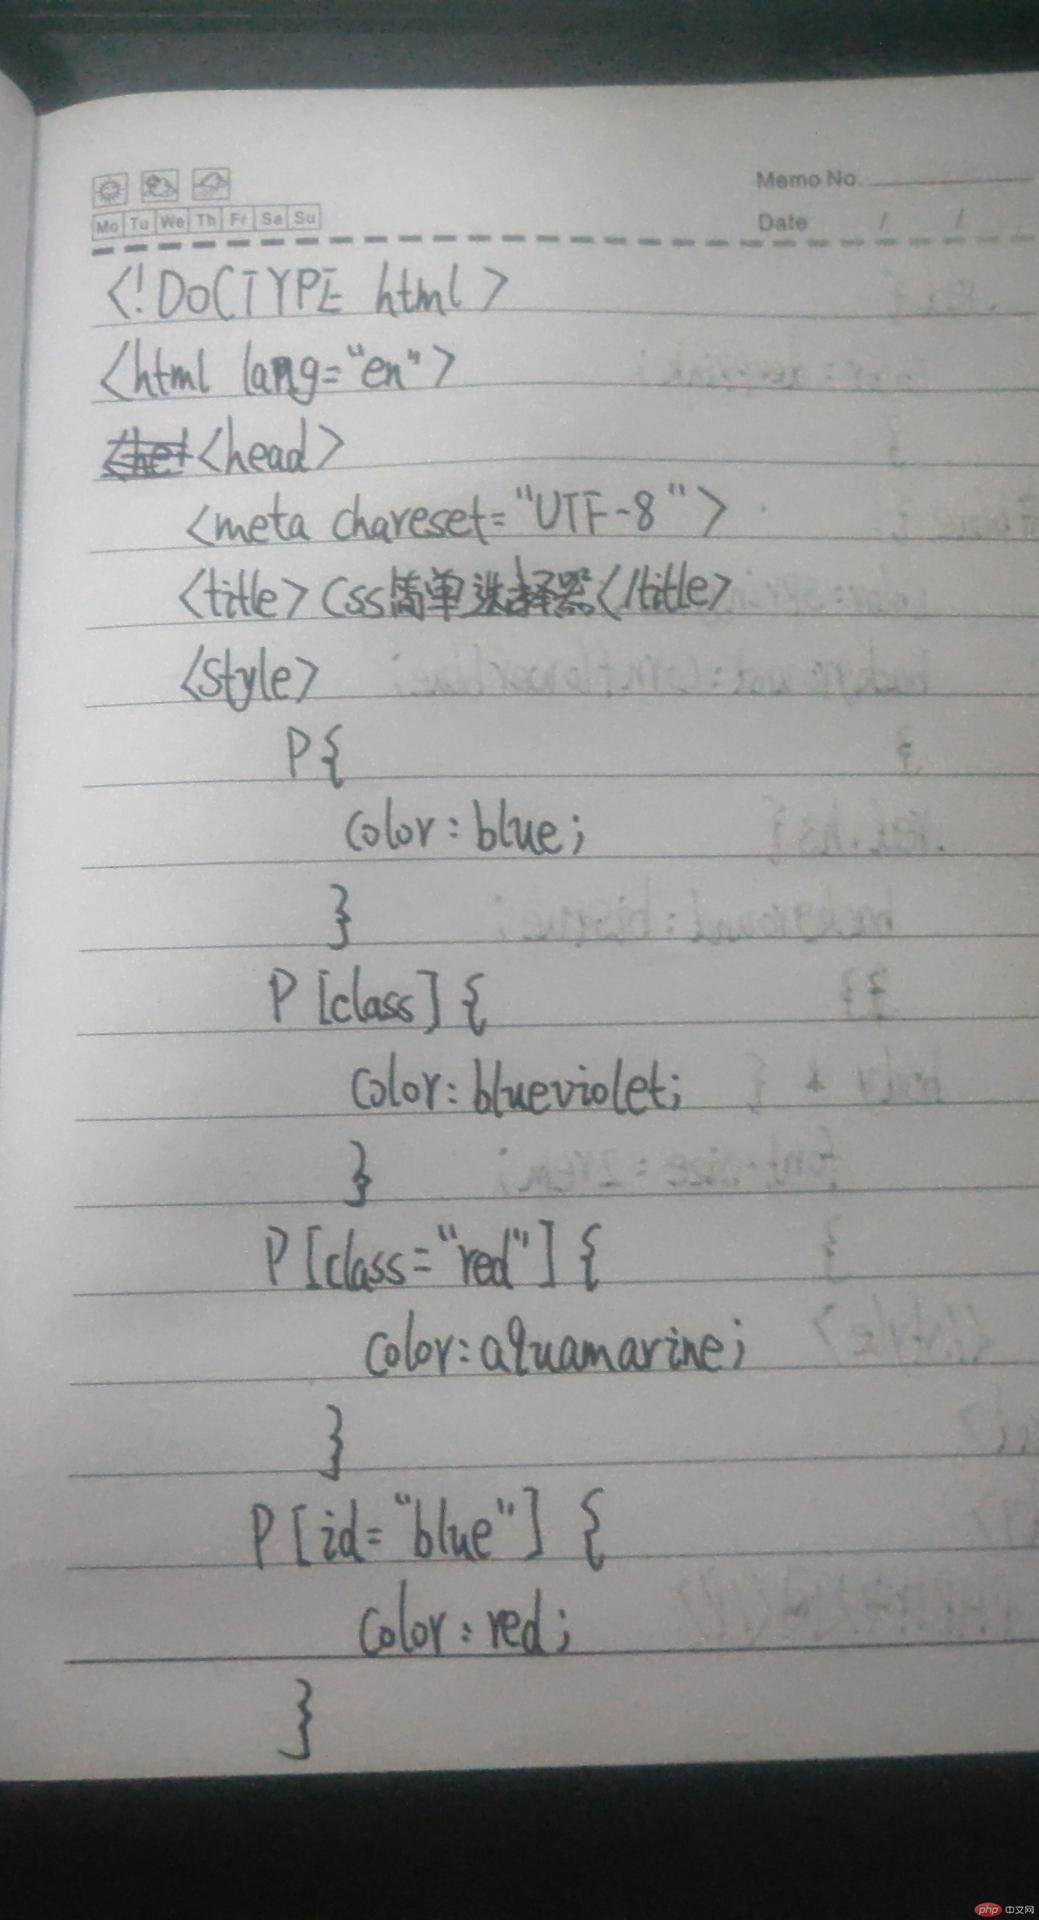 Memo No.
Mo Tu We Th Fr Sa Su
Date / /
<!DOCTYPE html>
<html lang="en">
<head>
<meta chareset="UTF-8">
<title>Css简单选择器</title>
<style>
P{
color:blue;
}
P[class]{
color:blueviolet;
}
P[class="red"]{
color:aquamarine;
}
P[id="blue"]{
color:red;
}
php 中文网